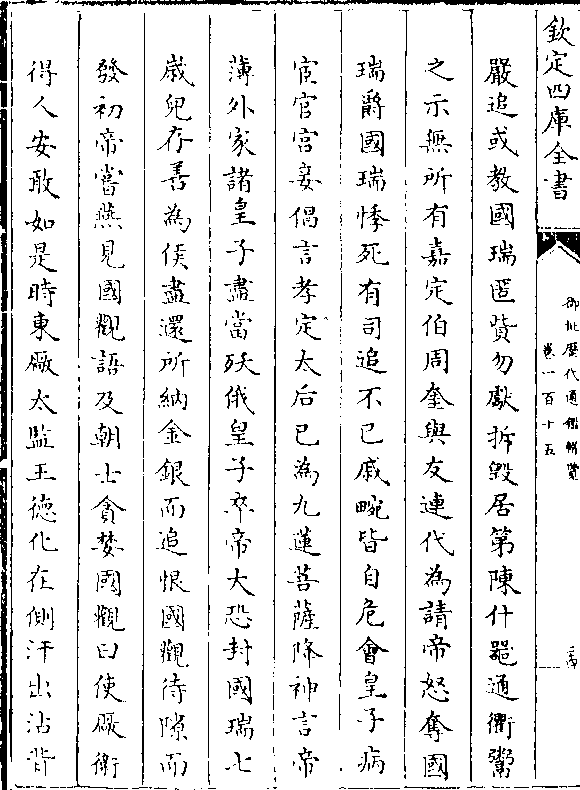 欽定四庫全書
御批歷代通鑑輯覽
卷一百十五
嚴追或教國瑞匿貲勿獻拆毀居第陳什器通衢鬻
之示無所有嘉定伯周奎與友連代為請帝怒奪國
瑞爵國瑞悸死有司追不已戚畹皆自危會皇子病
宦官宮妾倡言孝定太后已為九蓮菩薩降神言帝
薄外家諸皇子盡當殀俄皇子卒帝大恐封國瑞七
歲兒存善為侯盡還所納金銀而追恨國觀待隙而
發初帝嘗燕見國觀語及朝士貪婪國觀曰使廠衛
得人安敢如是時東厰太監王德化在側汗出沾背